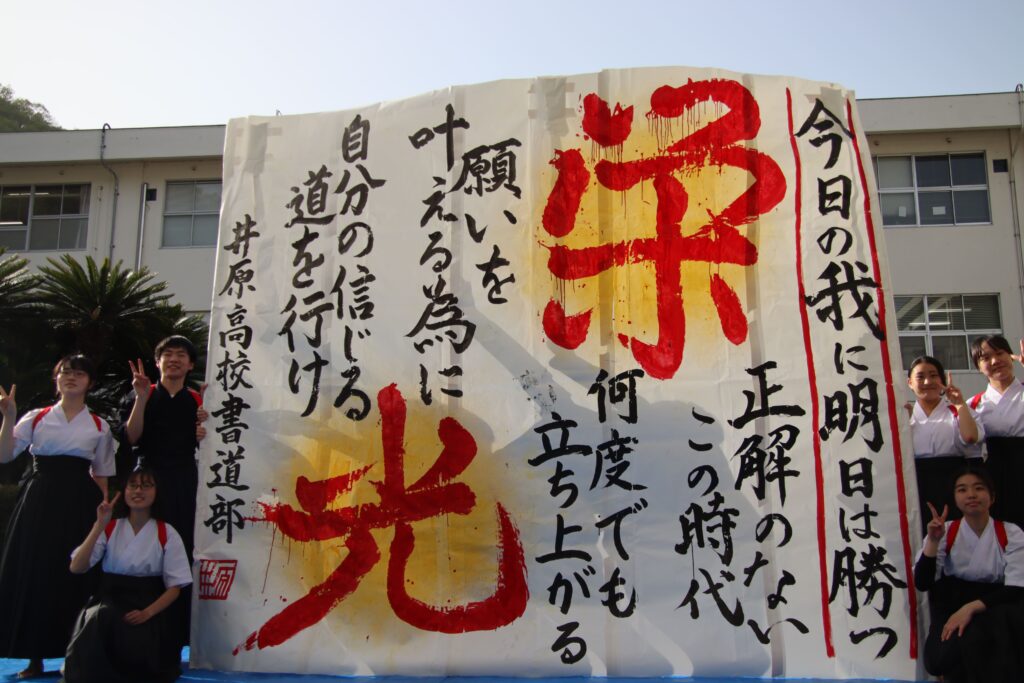 今日の我に明日は勝つ
栄
正解のない
この時代
何度でも
立ち上がる
願いを
叶える為に
光
自分の信じる
道を行け
井原高校書道部